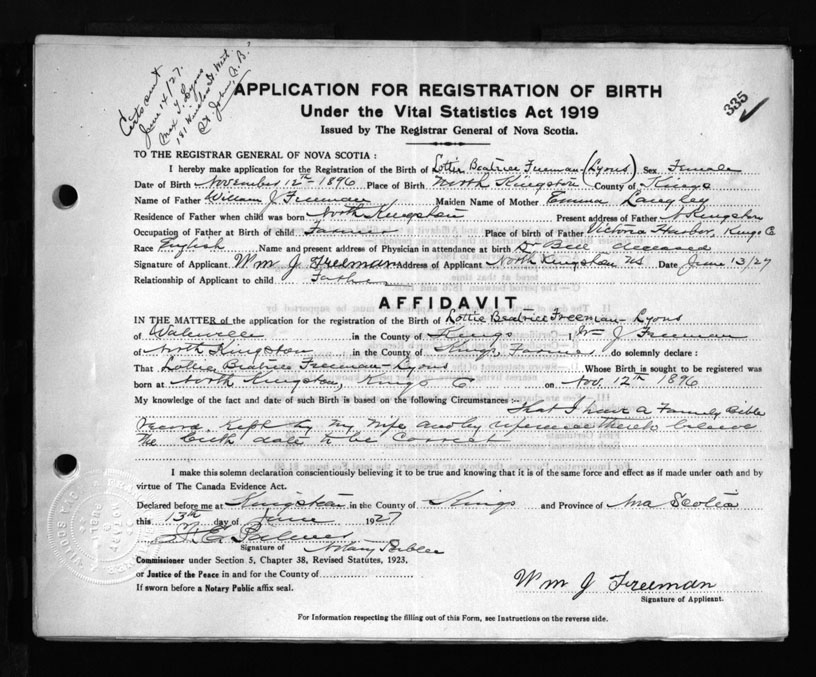 Certs sent
June 14/27.
Max Y. Lyons
181 Winslow St. West
St. John, N.B.
335
APPLICATION FOR REGISTRATION OF BIRTH
Under the Vital Statistics Act 1919
Issued by The Registrar General of Nova Scotia.
TO THE REGISTRAR GENERAL OF NOVA SCOTIA :
I hereby make application for the Registration of the Birth of Lottie Beatrice Freeman (Lyons) Sex Female
Date of Birth November 12th 1896 Place of Birth North Kingston County of Kings
Name of Father William J. Freeman Maiden Name of Mother Emma Langley
Residence of Father when child was born North Kingston Present address of Father N Kingston
Occupation of Father at Birth of child Farmer Place of birth of Father Victoria Harbor, Kings C
Race English Name and present address of Physician in attendance at birth Dr Bell deceased
Signature of Applicant Wm J. Freeman Address of Applicant North Kingston NS Date June 13/27
Relationship of Applicant to child Father
AFFIDAVIT
IN THE MATTER of the application for the registration of the Birth of Lottie Beatrice Freeman - Lyons
of in the County of Kings I, Wm J Freeman
of North Kingston in the County of Kings, Farmer do solemnly declare :
That Lottie Beatrice Freeman - Lyons Whose Birth is sought to be registered was
born at North Kingston, Kings C on Nov. 12th 1896
My knowledge of the fact and date of such Birth is based on the following Circumstances :- That I have a Family Bible
Record, Kept by my Wife and by reference thereto believe
The birth date to be Correct
I make this solemn declaration conscientiously believing it to be true and knowing that it is of the same force and effect as if made under oath and by
virtue of The Canada Evidence Act.
Declared before me at Kingston in the County of Kings and Province of Nova Scotia
this 13th day of June 1927
Signature of Notary Public
Commissioner under Section 5, Chapter 38, Revised Statutes, 1923.
or Justice of the Peace in and for the County of
If sworn before a Notary Public affix seal.
Wm J Freeman
Signature of Applicant.
For Information respecting the filling out of this Form, see Instructions on the reverse side.